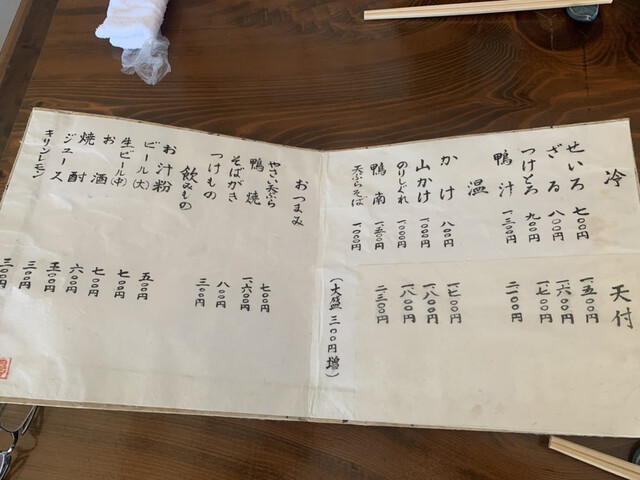 冷 天付
せいろ 七〇〇円 一五〇〇円
ざる 八〇〇円 一六〇〇円
つけとろ 九〇〇円 一七〇〇円
鴨汁 一三〇〇円 二一〇〇円
温
かけ 八〇〇円
山かけ 一〇〇〇円 一八〇〇円
のりしぐれ 一〇〇〇円 一八〇〇円
鴨南 一五〇〇円 二三〇〇円
天ぷらそば
(大盛 三〇〇円増)
おつまみ
やさい天ぷら 七〇〇円
鴨焼 一六〇〇円
そばがき 八〇〇円
つけもの 三〇〇円
飲みもの
お汁粉 五〇〇円
ビール(大) 七〇〇円
生ビール(中) 七〇〇円
お酒 六〇〇円
焼酎 五〇〇円
ジュース 三〇〇円
キリンレモン 三〇〇円